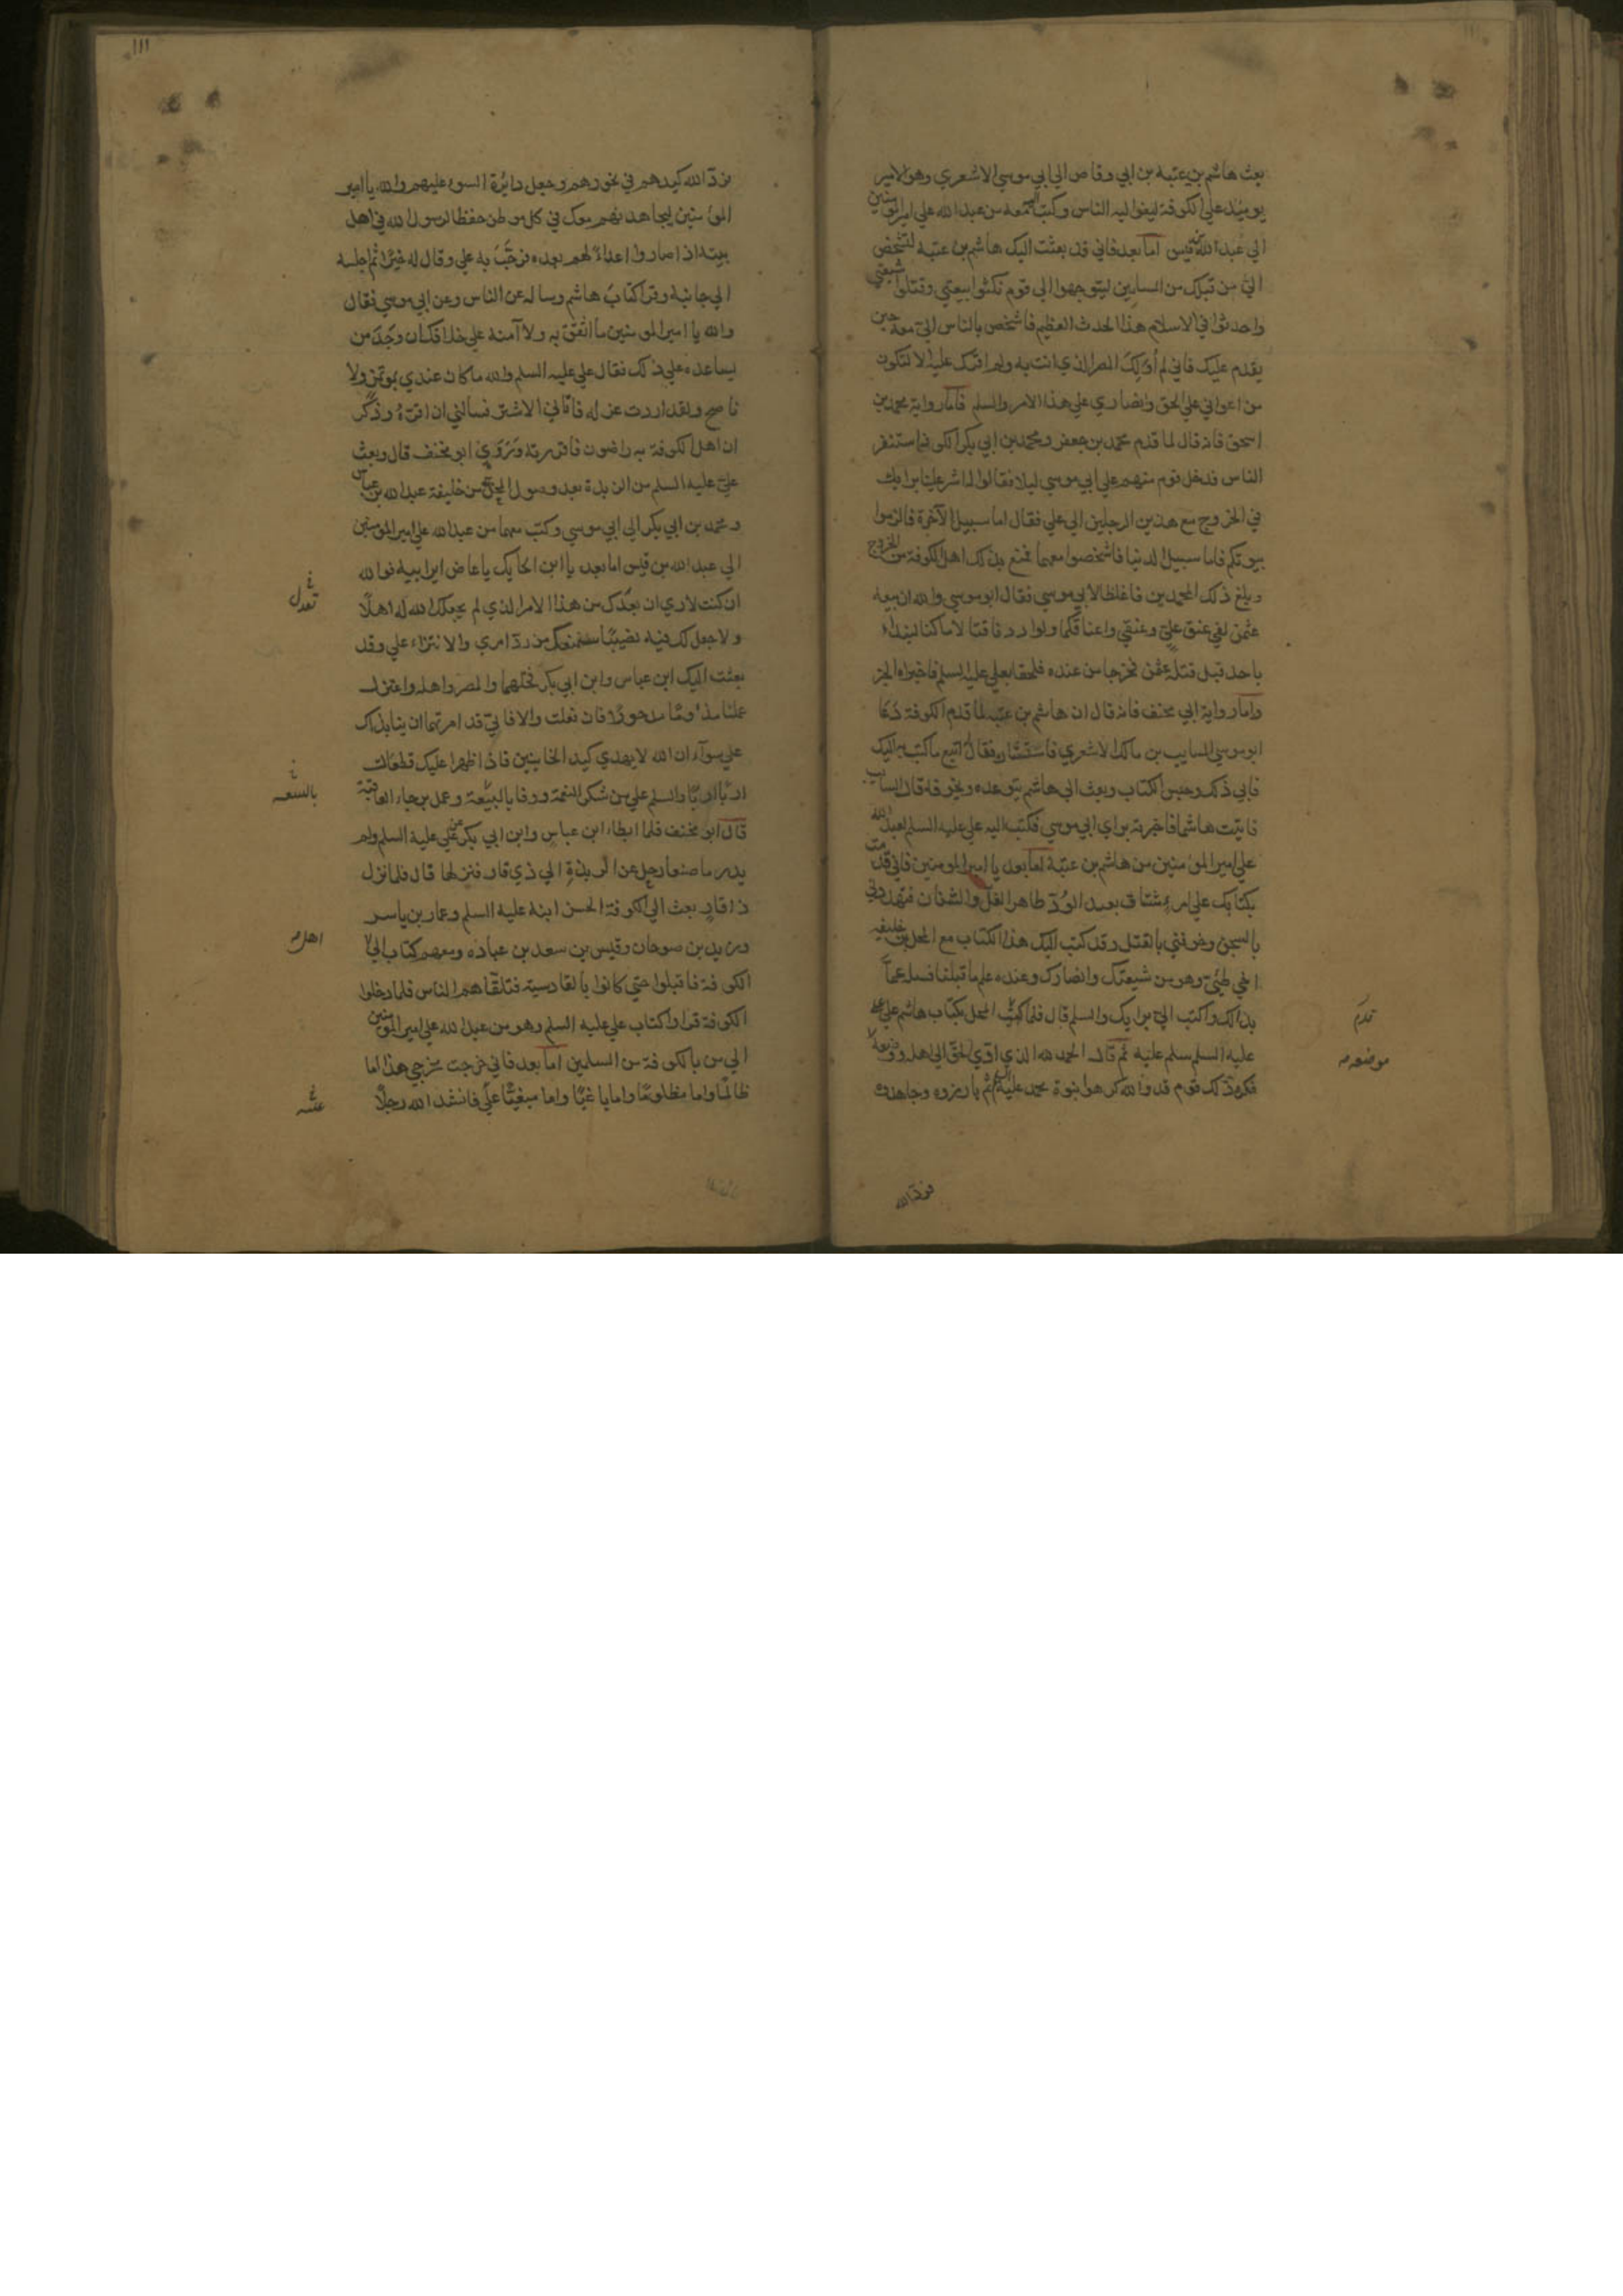 بعث هاشم بن عتبة بن ابي وقاص الي ابي موسي الاشعري وهو الامير
يومئذ علي الكوفة لينفر اليه الناس وكتب اليه معه من عبد الله علي امير المؤمنين
الي عبد الله بن قيس اما بعد فاني قد بعثت اليك هاشم بن عتبة لتشخص
الي من قبلك من المسلمين ليتوجهوا الي قوم نكثوا بيعتي وقتلوا شيعتي
واحدثوا في الاسلام هذا الحدث العظيم فاشخص بالناس الي معه حين
يقدم عليك فاني لم أولك المصر الذي انت به ولم اقرك عليه الا لتكون
من اعواني علي الحق وانصاري علي هذا الامر والسلم فاما رواية محمد بن
اسحق فانه قال لما قدم محمد بن جعفر ومحمد بن ابي بكر الكوفة استنفر
الناس فدخل قوم منهم علي ابي موسي ليلا فقالوا له اشر علينا برايك
في الخروج مع هذين الرجلين الي علي فقال اما سبيل الاخرة فالزموا
بيوتكم فاما سبيل الدنيا فاشخصوا معهما فمنع بذلك اهل الكوفة من الخروج
وبلغ ذلك المحمدين فاغلظا لابي موسي فقال ابو موسي والله ان بيعة
عثمن لفي عنق علي وعنقي واعناقكما ولو اردنا قتالا ما كنا لنبدأ
باحد قبل قتلة عثمن فخرجا من عنده فلحقا بعلي عليه السلم فاخبراه الخبر
واما رواية ابي مخنف فانه قال ان هاشم بن عتبة لما قدم الكوفة دعا
ابو موسي السايب بن مالك الاشعري فاستشاره فقال اتبع ما كتب به اليك
فابي ذلك وحبس الكتاب وبعث الي هاشم يتوعده ويخوفه قال السايب
فاتيت هاشما فاخبرته براي ابي موسي فكتب اليه علي عليه السلم لعبد الله
علي امير المؤمنين من هاشم بن عتبة اما بعد يا امير المومنين فاني قدمت
بكتابك علي امرء مشتاق بعيد الود ظاهر الغل والشنان فتهددني
بالسجن وخوفني بالقتل وقد كتبت اليك هذا الكتاب مع المحل بن خليفه
اخي طيئ وهو من شيعتك وانصارك وعنده علم ما قبلنا فسله عما
بدا لك واكتب الي برايك والسلم قال فلما المحل بكتاب هاشم علي علي
عليه السلم سلم عليه ثم قال الحمد لله الذي ادي الحق الي اهله ووضعه
فكره ذلك قوم قد والله كرهوا نبوة محمد عليه السلم ثم بارزوه وجاهدوه
قدم
موضعه
فرد الله
١١١
فرد الله كيدهم في نحورهم وجعل دائرة السوء عليهم والله يا امير
المؤمنين لنجاهدنهم معك في كل موطن حفظا لرسول الله في اهل
بيته اذ صاروا اعداء لهم بعده فرحب به علي وقال له خيرا ثم اجلسه
الي جانبه وقرا كتاب هاشم وساله عن الناس وعن ابي موسي فقال
والله يا امير المومنين ما اثق به ولا آمنه علي خلافك ان وجد من
يساعده علي ذلك فقال علي عليه السلم والله ما كان عندي بموتمن ولا
ناصح ولقد اردت عزله فاتاني الاشتر فسالني ان اقره وذكر
ان اهل الكوفة به راضون فاقررته وروي ابو مخنف قال وبعث
علي عليه السلم من الربذة بعد وصول المحل بن خليفة عبد الله بن عباس
ومحمد بن ابي بكر الي ابي موسي وكتب معهما من عبد الله علي امير المومنين
الي عبد الله بن قيس اما بعد يا ابن الحايك يا عاض اير ابيه فوالله
ان كنت لاري ان بعدك من هذا الامر الذي لم يجعلك الله له اهلا
ولا جعل لك فيه نصيبا سيمنعك من رد امري والانتزاء علي وقد
بعثت اليك ابن عباس وابن ابي بكر فخلهما والمصر واهله واعتزل
عملنا مذءوما مدحورا فان فعلت والا فاني قد امرتهما ان ينابذاك
علي سواء ان الله لا يهدي كيد الخاينين فاذا ظهرا عليك قطعاك
اربا اربا والسلم علي من شكر النعمة ووفا بالبيعة وعمل برجاء العاقبة
قال ابو مخنف فلما ابطا ابن عباس وابن ابي بكر عن علي عليه السلم ولم
يدر ما صنعا رحل عن الربذة الي ذي قار فنزلها قال فلما نزل
ذا قار بعث الي الكوفة الحسن ابنه عليه السلم وعمار بن ياسر
وزيد بن صوحان وقيس بن سعد بن عباده ومعهم كتاب الي
الكوفة فاقبلوا حتي كانوا بالقادسية فتلقاهم الناس فلما دخلوا
الكوفة قراوا كتاب علي عليه السلم وهو من عبد الله علي امير المومنين
الي من بالكوفة من المسلمين اما بعد فاني خرجت مخرجي هذا اما
ظالما واما مظلوما واما باغيا واما مبغيا علي فانشد الله رجلا
اهل